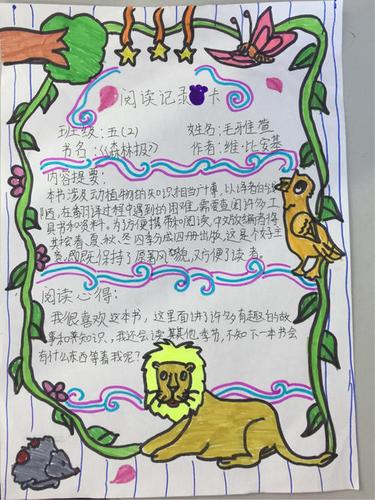 阅读记录卡
班级:五(2) 姓名:毛雅佳萱
书名:《森林报》 作者:维·比安基
内容提要:
本书涉及动植物的知识相当广博,以译者的
陋,在翻译过程中遇到的困难,需要查阅许多工
具书和资料。为了方便携带和阅读,中文版编者将
其按春、夏、秋、冬四季分成四册出版,这是个好主
意,既保持了原著风貌,又方便了读者。
阅读心得:
我很喜欢这本书,这里面讲了许多有趣的故
事和知识,我还会读其他季节,不知下一本书会
有什么东西等着我呢?